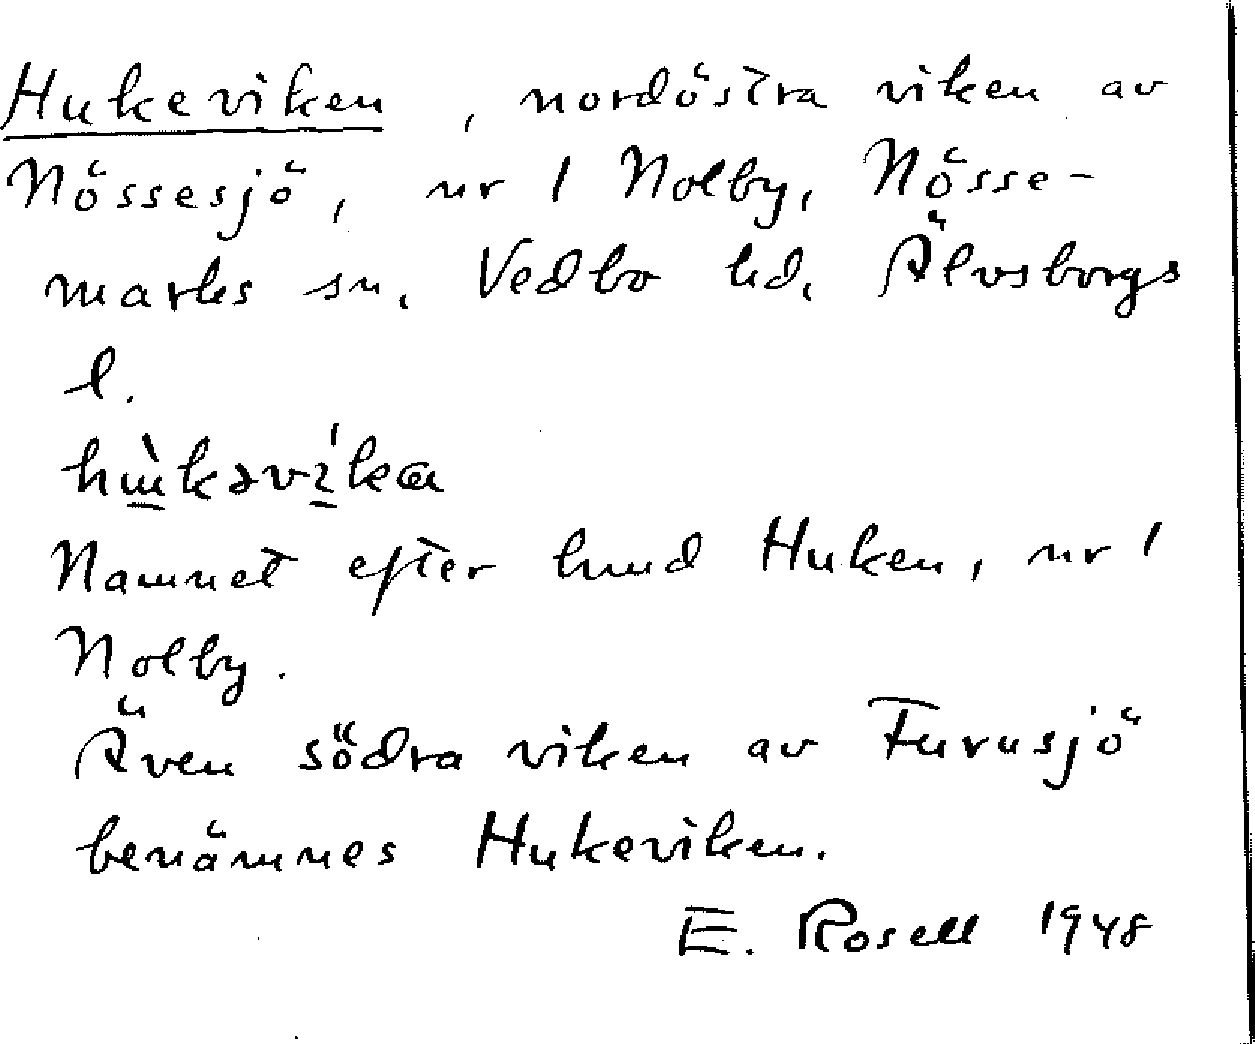 Hukeviken, nordöstra viken av
Nössesjö, nr 1 Nolby, Nösse-
marks sn. Vedbo hd, Älvsborgs
l.
Namnet efter hmd Huken, nr 1
Nolby.
Även södra viken av Furusjö
benämnes Hukeviken.
E. Rosell 1948